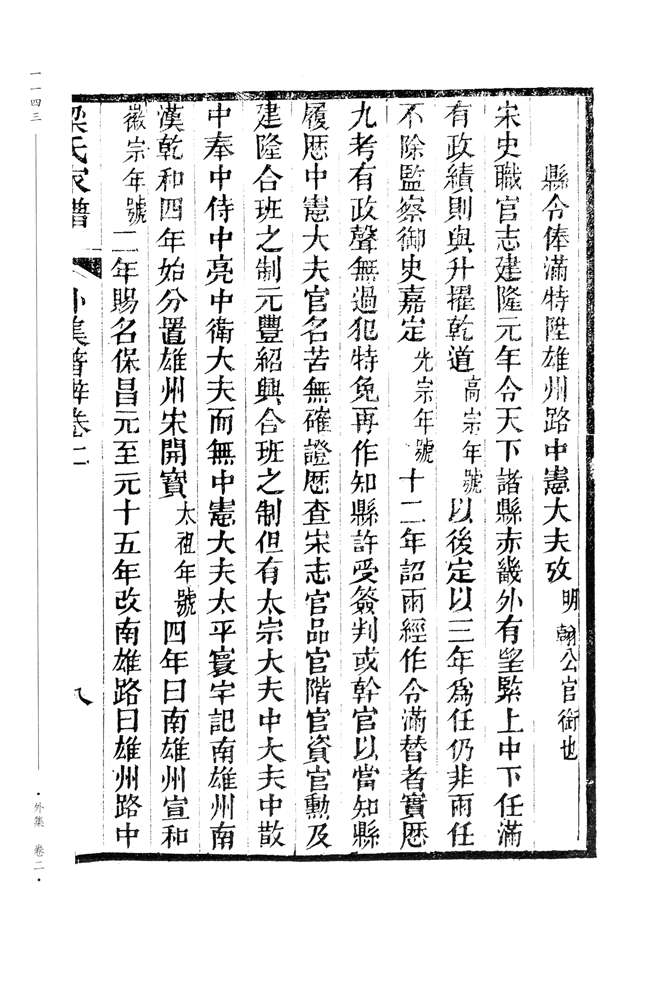 縣令俸滿特陞雄州路中憲大夫攷明翰公官銜也
宋史職官志建隆元年令天下諸縣赤畿外有望緊上中下任滿
有政績則與升擢乾道高宗年號以後定以三年爲任仍非兩任
不除監察御史嘉定光宗年號十二年詔兩經作令滿替者實歷
九考有政聲無過犯特免再作知縣許受簽判或幹官以當知縣
履歷中憲大夫官名苦無確證歷查宋志官品官階官資官勳及
建隆合班之制元豐紹興合班之制但有太宗大夫中大夫中散
中奉中侍中亮中衛大夫而無中憲大夫太平寰宇記南雄州南
漢乾和四年始分置雄州宋開寶太祖年號四年曰南雄州宣和
徽宗年號二年賜名保昌元至元十五年改南雄路曰雄州路中
梁氏家譜 外集譜辨卷二 八
一一四三
·外集 卷二·